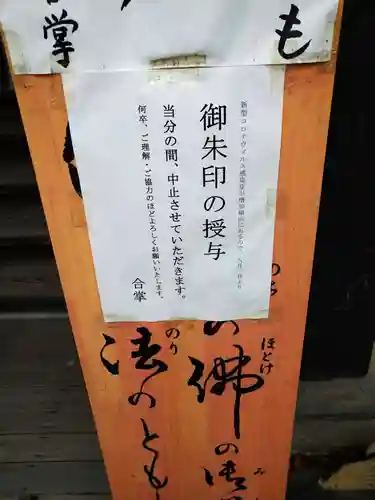 も
掌
新型コロナウイルス感染症が増加傾向にあるので、八月一日より
御朱印の授与
当分の間、中止させていただきます。
何卒、ご理解・ご協力のほどよろしくお願い致します。
合掌
ほとけ
の佛の御
み
のり
法のとも